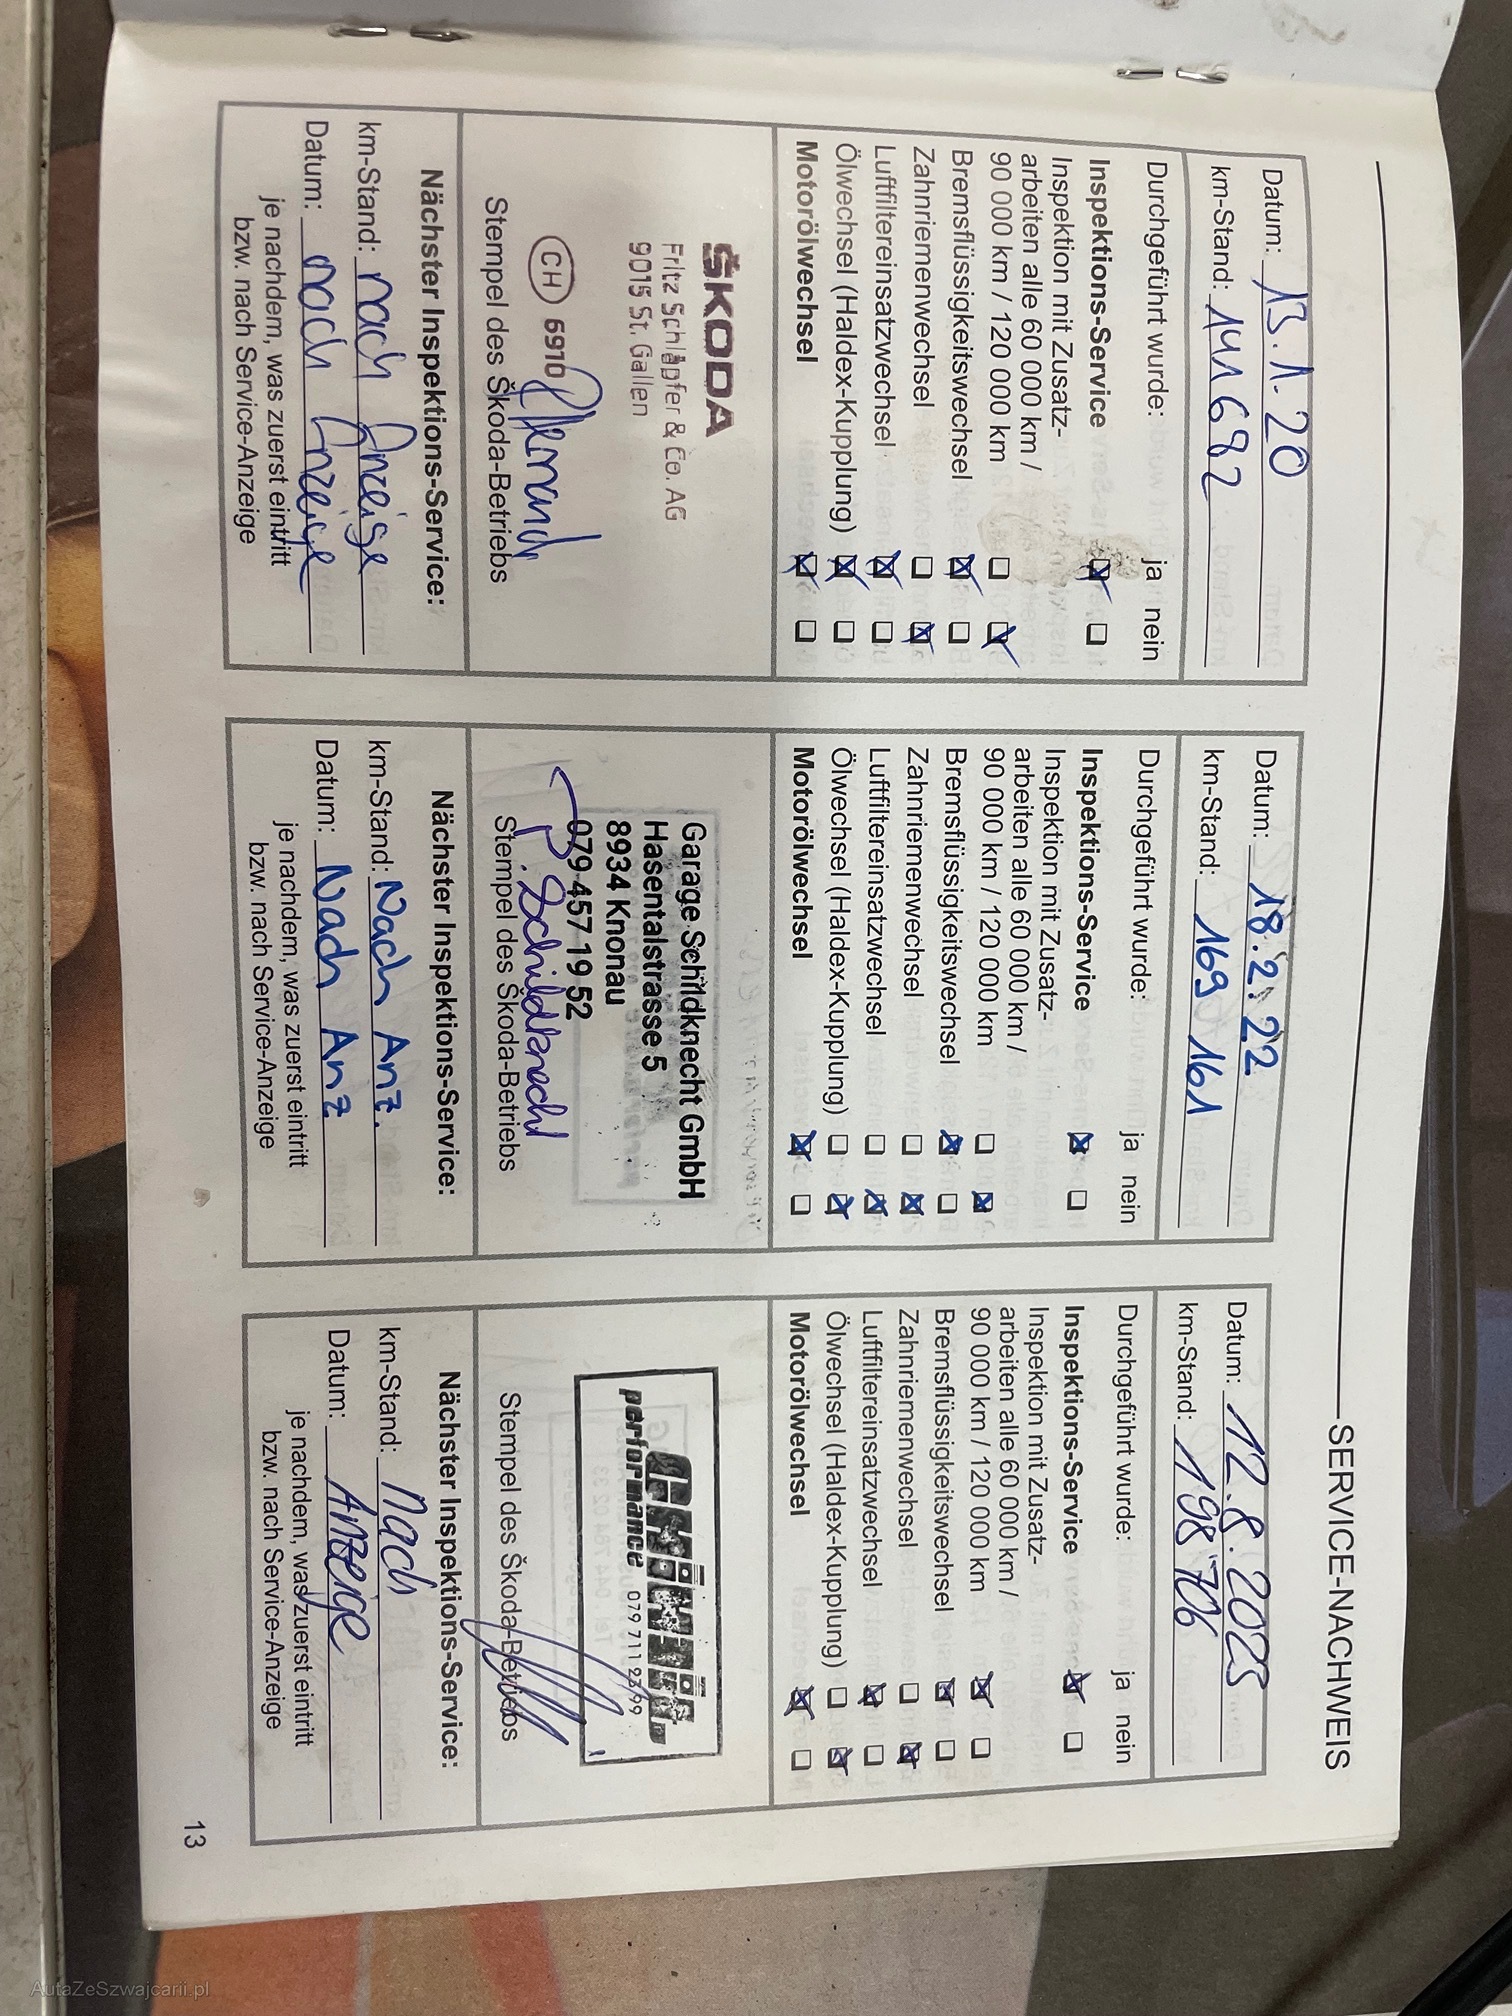 SERVICE-NACHWEIS
Datum: 13.1.20
km-Stand: 141682
Durchgeführt wurde: ja nein
Inspektions-Service
Inspektion mit Zusatz-
arbeiten alle 60 000 km /
90 000 km / 120 000 km
Bremsflüssigkeitswechsel
Zahnriemenwechsel
Luftfiltereinsatzwechsel
Ölwechsel (Haldex-Kupplung)
Motorölwechsel
ŠKODA
Fritz Schläpfer & Co. AG
9015 St. Gallen
CH 6910
Stempel des Škoda-Betriebs
Nächster Inspektions-Service:
km-Stand: nach Anzeige
Datum: nach Anzeige
je nachdem, was zuerst eintritt
bzw. nach Service-Anzeige
Datum: 18.2.22
km-Stand: 169 161
Durchgeführt wurde: ja nein
Inspektions-Service
Inspektion mit Zusatz-
arbeiten alle 60 000 km /
90 000 km / 120 000 km
Bremsflüssigkeitswechsel
Zahnriemenwechsel
Luftfiltereinsatzwechsel
Ölwechsel (Haldex-Kupplung)
Motorölwechsel
Garage Schildknecht GmbH
Hasentalstrasse 5
8934 Knonau
079 457 19 52
Schildknecht
Stempel des Škoda-Betriebs
Nächster Inspektions-Service:
km-Stand: Nach Anz.
Datum: Nach Anz.
je nachdem, was zuerst eintritt
bzw. nach Service-Anzeige
Datum: 12.8.2023
km-Stand: 198'706
Durchgeführt wurde: ja nein
Inspektions-Service
Inspektion mit Zusatz-
arbeiten alle 60 000 km /
90 000 km / 120 000 km
Bremsflüssigkeitswechsel
Zahnriemenwechsel
Luftfiltereinsatzwechsel
Ölwechsel (Haldex-Kupplung)
Motorölwechsel
performance 079 711 23 99
Stempel des Škoda-Betriebs
Nächster Inspektions-Service:
km-Stand: Nach
Datum: Anzeige
je nachdem, was zuerst eintritt
bzw. nach Service-Anzeige
13
AutaZeSzwajcarii.pl